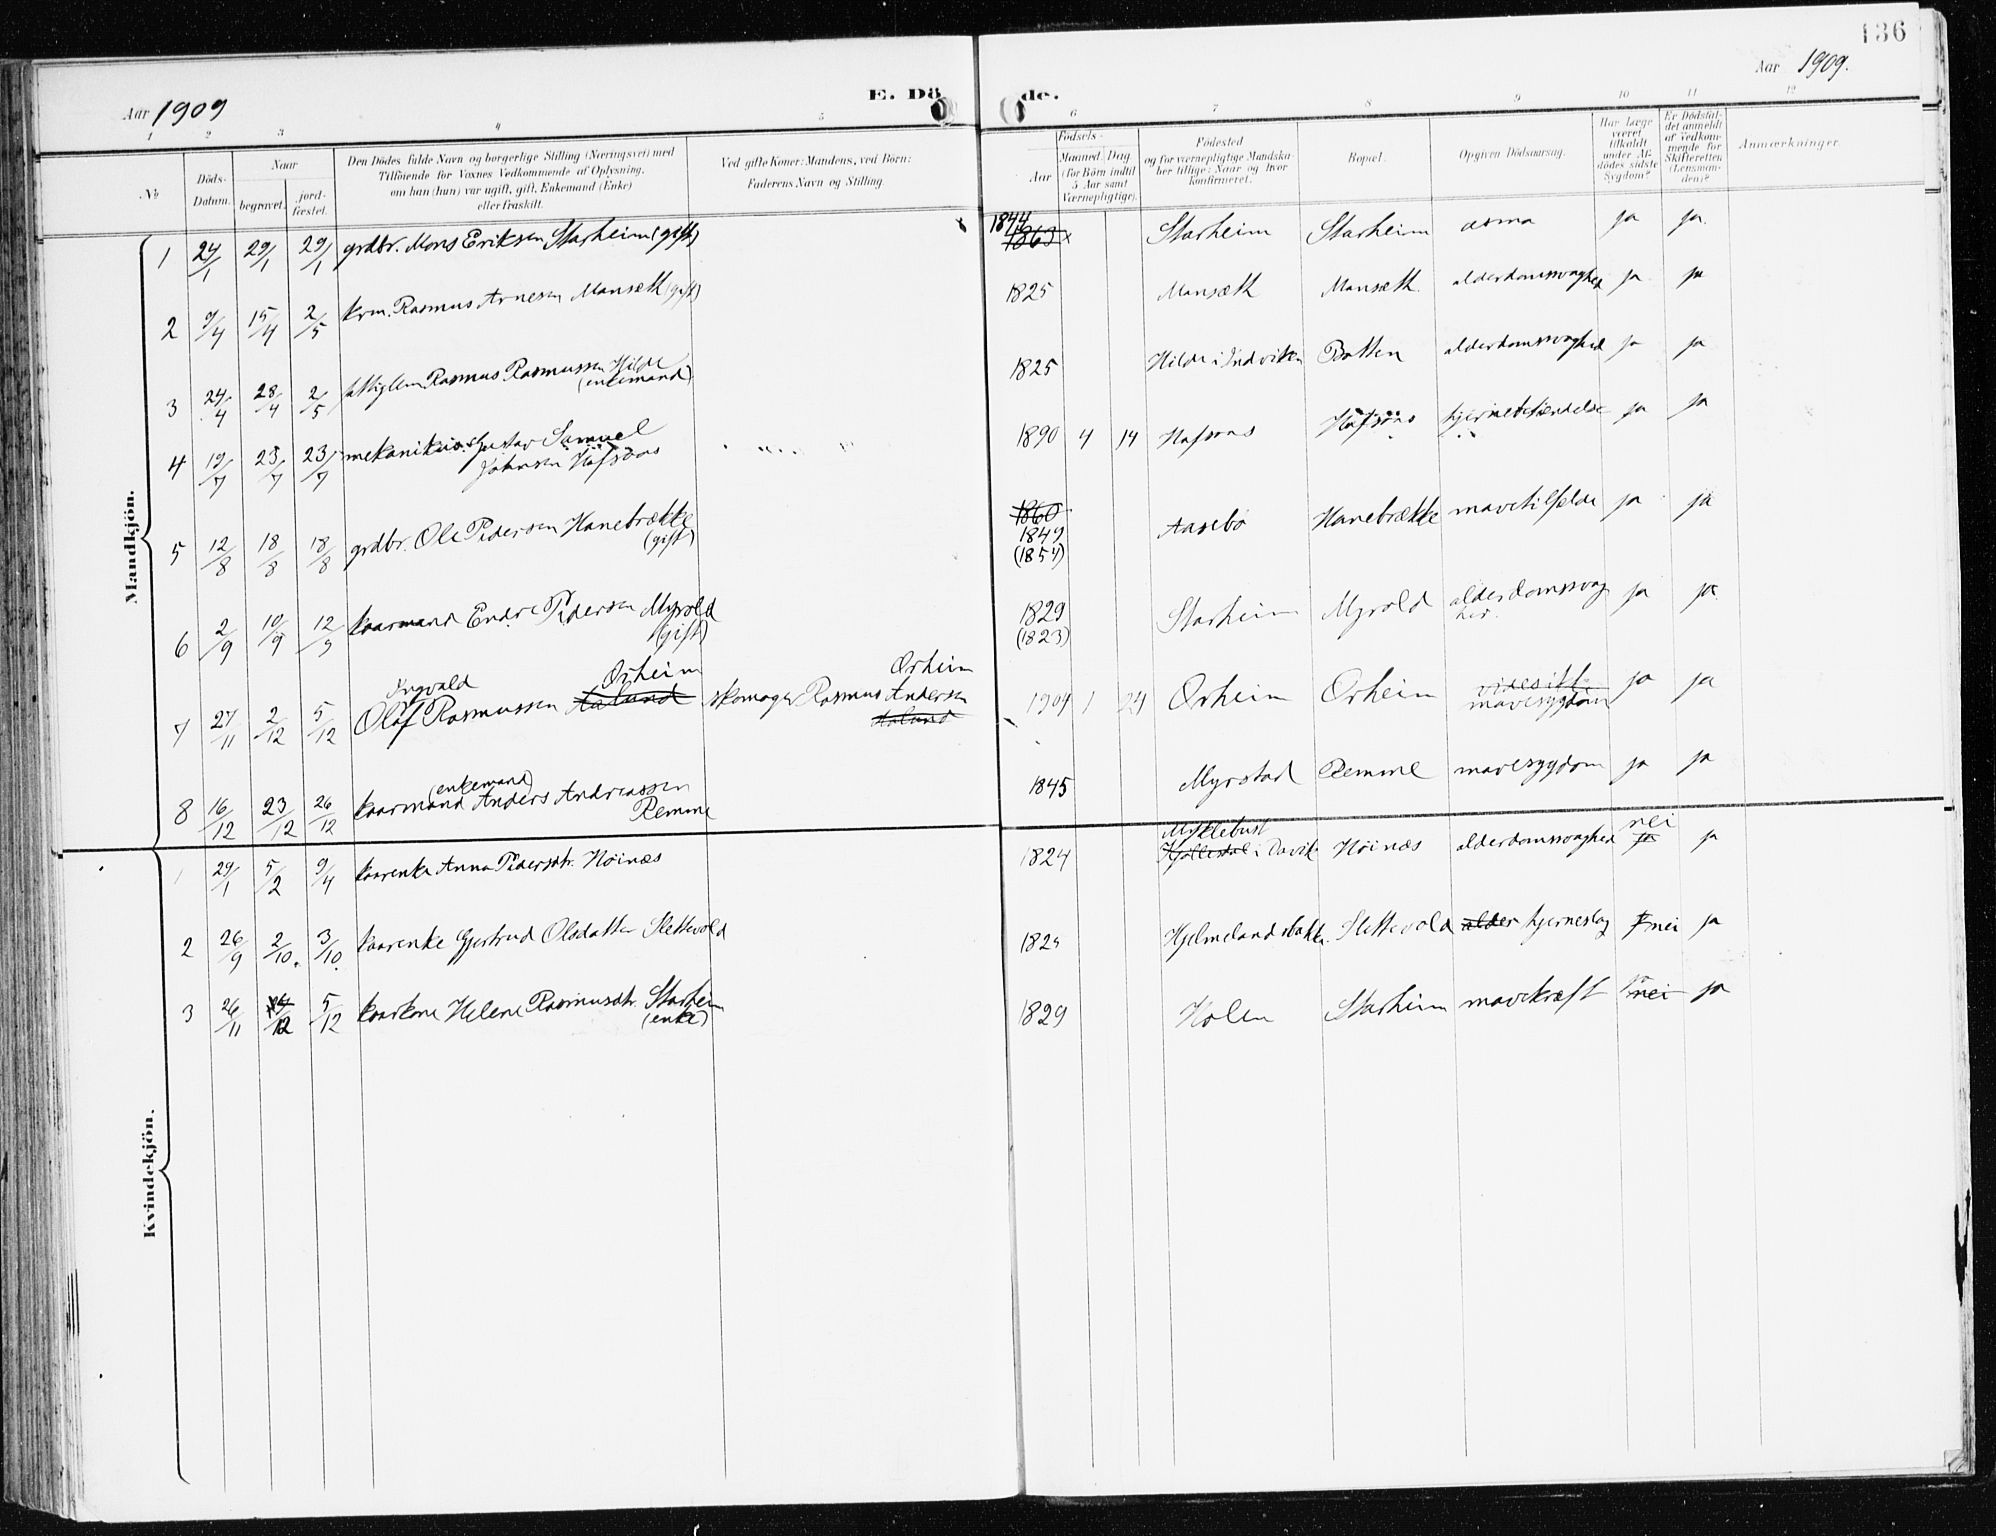 136
Aar 1909
E. Dö de.
Aar 1909.
1 2 3 4 5 6 7 8 9 10 11 12
№
Döds-Datum.
Naar
begravet.
jord-fæstet.
Den Dödes fulde Navn og borgerlige Stilling (Næringsvei) med
Tilföiende for Voxnes Vedkommende af Oplysning,
om han (hun) var ugift, gift, Enkemand (Enke)
eller fraskilt.
Ved gifte Koner: Mandens, ved Börn:
Faderens Navn og Stilling.
Födsels-
Aar
Maaned. Dag.
(for Börn indtil
5 Aar samt
Værnepligtige).
Födested
og for værnepligtige Mandska-
ber tillige: Naar og hvor
konfirmeret.
Bopæl.
Opgiven Dödsaarsag.
Har Læge
været
tilkaldt
under Af-
dödes sidste
Sygdom?
Er Dödsfal-
det anmeldt
af Vedkom-
mende for
Skifteretten
(Lensman-
den)?
Anmærkninger.
Mandkjön.
1 24/1 29/1 29/1 grdbr. Mons Eriksen Starheim (gift) 1844 1863 x Starheim Starheim asma ja ja.
2 9/4 15/4 2/5 krm. Rasmus Arnesen Mansæth (gift) 1825 Mansæth Mansæth alderdomssvaghed ja ja
3 24/4 28/4 2/5 fattiglem Rasmus Rasmussen Hilde
(enkemand) 1825 Hilde i Indviken Botten alderdomssvaghed ja ja
4 19/7 23/7 23/7 mekanikus Gustav Samuel
Johnsen Hafsaas 1890 4 14 Hafsaas Hafsaas hjernebetændelse ja ja
5 12/8 18/8 18/8 grdbr. Ole Pedersen Hanebrække
(gift) 1860
1849
(1854) Aasebø Hanebrække mavetilfælde ja ja
6 2/9 10/9 12/9 kaarmand Endre Pedersen Myrold
(gift) 1829
(1823) Starheim Myrold alderdomssvag
hed. ja ja
Ingvald Orheim Orheim
7 27/11 2/12 5/12 Olaf Rasmussen Aaland skomager Rasmus Andersen
Aaland 1904 1 24 Orheim Orheim
mavesygdom ja ja
(enkemand)
8 16/12 23/12 26/12 kaarmand Anders Andreassen
Remme 1845 Myrstad Remme mavesygdom ja ja
Kvindekjön.
Myklebust nei
1 29/1 5/2 9/4 kaarenke Anna Pedersdtr. Höinæs 1824 Hjellestal i Davik Höinæs alderdomssvaghed ja ja
2 26/9 2/10. 3/10. kaarenke Gjertrud Olsdatter Slettevold 1825 Hjelmelandsbakke. Slettevold alder hjerneslag nei ja
3 26/11 /12 5/12 kaarkone Helene Rasmusdtr. Starheim
(enke) 1829 Holen Starheim mavekræft ja nei ja